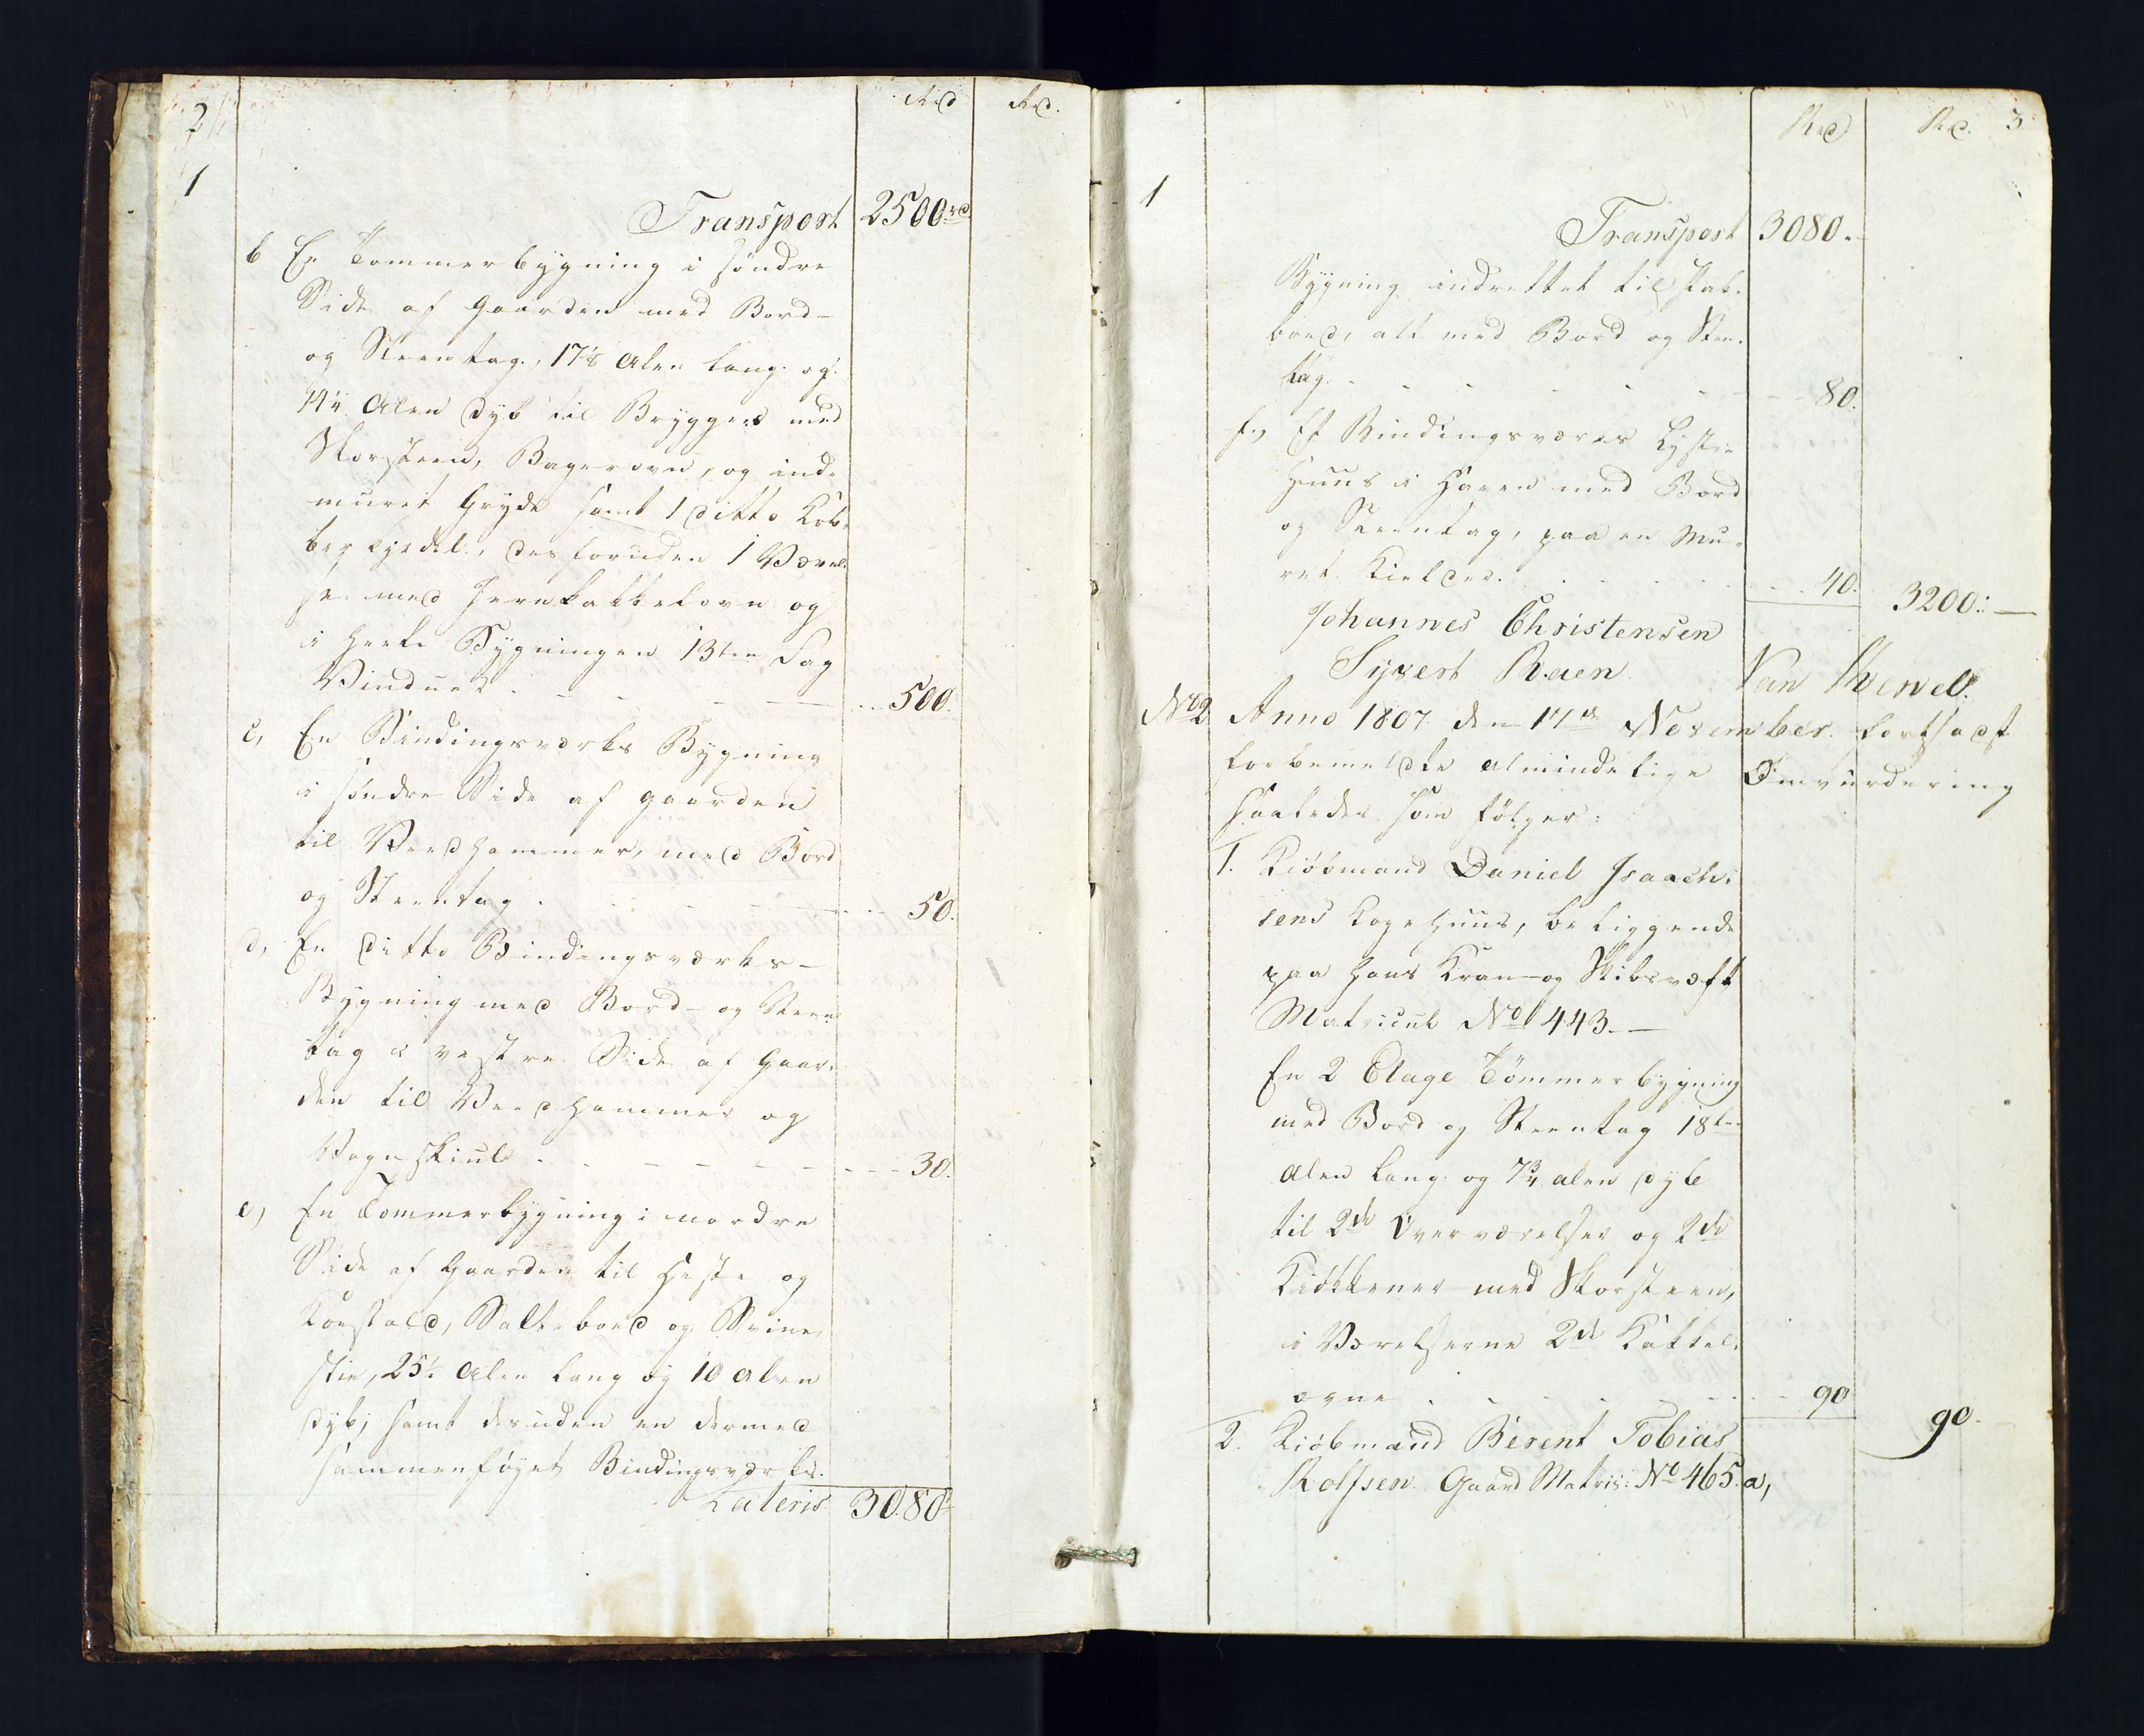 2
Rd Rd.
1
Transport 2500rd
b En Tømmerbygning i søndre
Side af Gaarden med Bord-
og Steentag, 17 1/8 Alen lang og
14 1/4 Alen dyb til Bryggers med
Skorsteen, Bagerovn, og ind-
muret Gryde samt 1 ditto Kob-
ber Kjedel, desforuden 1 Værel-
se med Jernkakkelovn og
i heele Bygningen 13ten Fag
Vinduer 500.
c, En Bindingsværks Bygning
i søndre Side af gaarden
til Veedhammer, med Bord
og Steentag 50.
d, En ditto Bindingsværks-
Bygning med Bord- og Steen-
tag i vestre Side af Gaar-
den til Veedhammer og
Vognskiul 30.
e, En Tømmerbygning i nordre
Side af Gaarden til Heste og
Koestald, Salteboed og Svine-
stie, 25 1/2 Alen lang og 10 alen
dyb; samt desuden en dermed
sammenføyet Bindingsværks-
Lateris 3080
Rd Rd. 3
1
Transport 3080.
Bygning indrettet til
boed, alt med Bord og Steen-
tag 80.
f, Et Bindingsværks Lyst-
Huus i Haven med Bord
og Steentag, paa en Mu-
ret Kielder. 40. 3200:
Johannes Christensen
Syvert Raen. Van Kervel.
No 2 Anno 1807 den 17de November fortsadst
forbemeldte almindelige Omvurdering
saaledes som følger:
1. Kiøbmand Daniel Isaach-
sens Koge Huus, beliggende
paa hans Kran- og Skibsvæft
Matricul No 443.
En 2 Etage Tømmerbygning
med Bord og Steentag 18ten
Alen lang og 7 3/4 alen dyb
til 2de Overværelser og 2de
Kiøkkener med Skorsteen,
i Værelserne 2de Kakkel-
ovne 90 90.
2. Kiøbmand Berent Tobias
Rolfsen Gaard Matric: No 465.a,